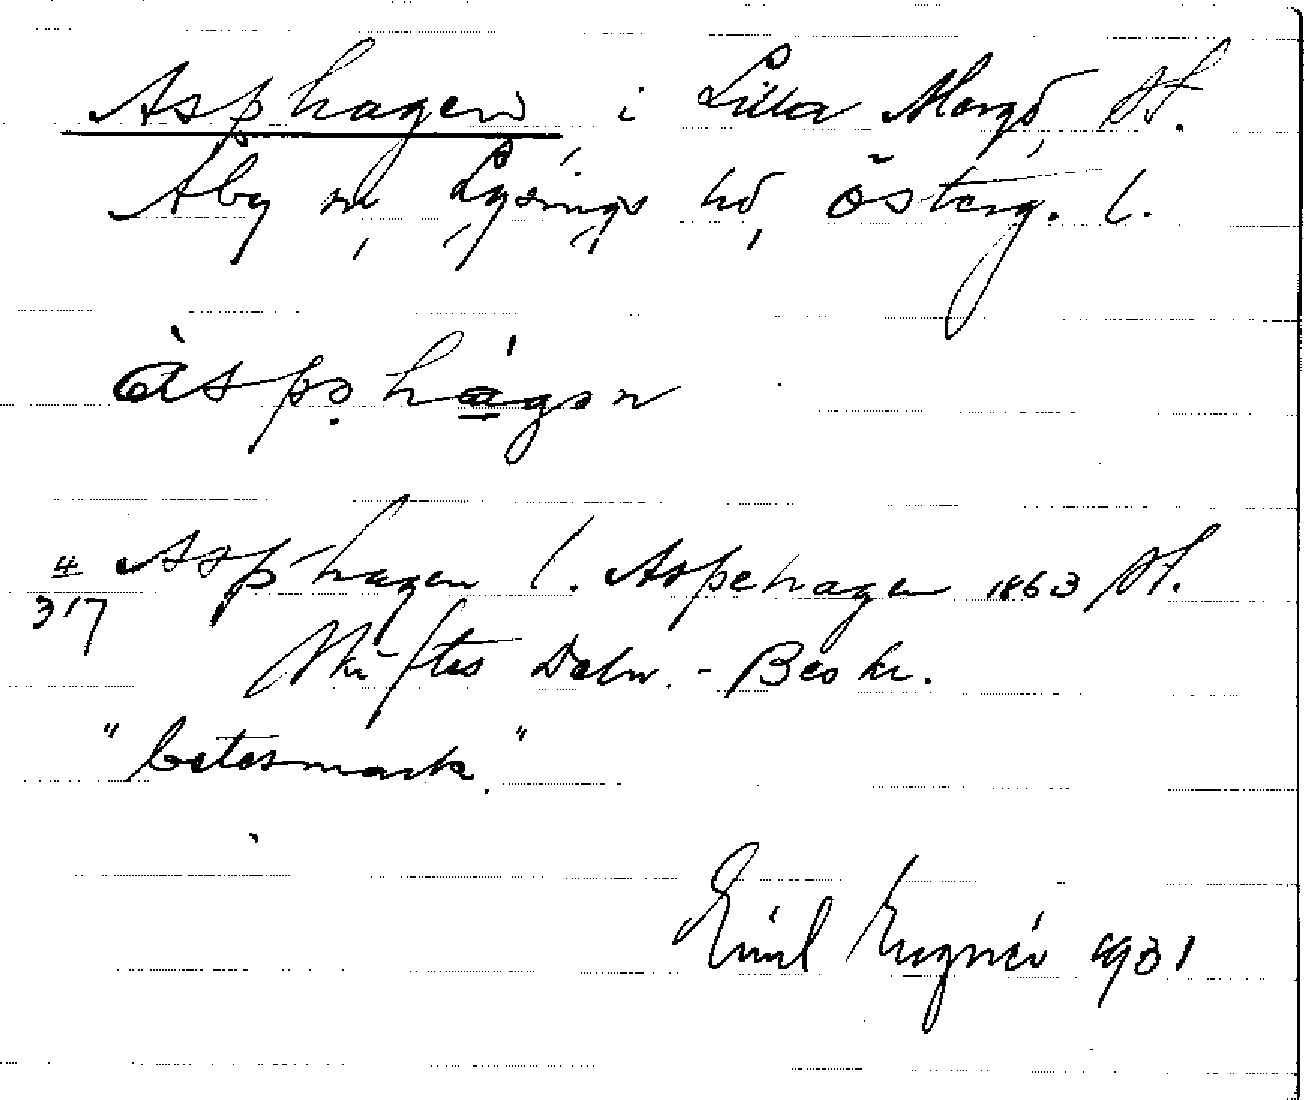 Asphagen i Lilla Morgö, St.
Åby sn, Lysings hd, Österg. l.
àspəhágən
4/317 Asphagen l. Aspehagen 1863 St.
Skiftes Deln.-Beskr.
"betesmark."
Emil 1931